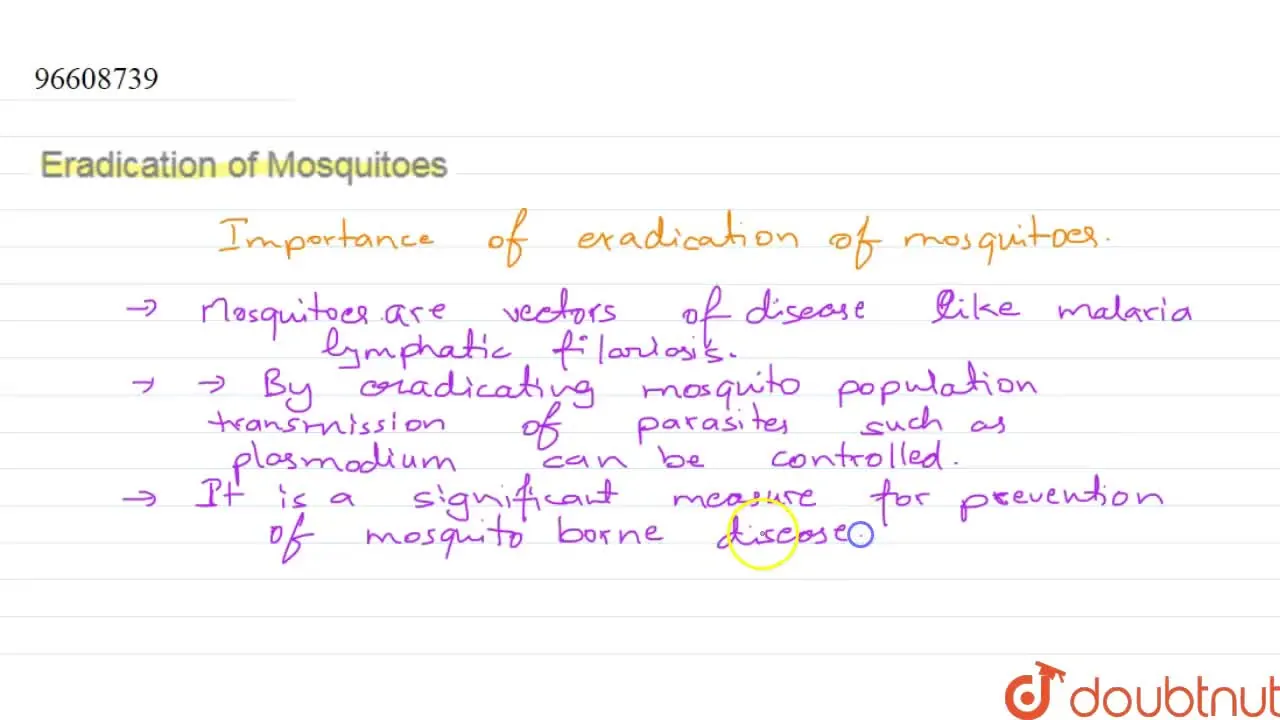 96608739
Eradication of Mosquitoes
Importance of eradication of mosquitoes.
→ Mosquitoes are vectors of disease like malaria
lymphatic filariosis.
→ → By eradicating mosquito population
transmission of parasites such as
plasmodium can be controlled.
→ It is a significant measure for prevention
of mosquito borne disease
doubtnut